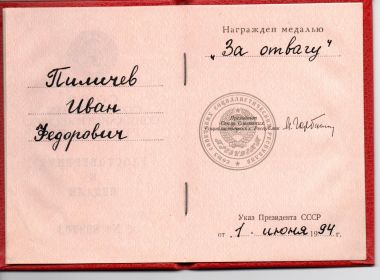 Пиличев
Иван
Федорович
Награжден медалью
„За отвагу"
Президент
Союза Советских
Социалистических Республик
Указ Президента СССР
от „1 " июня 1994 г.